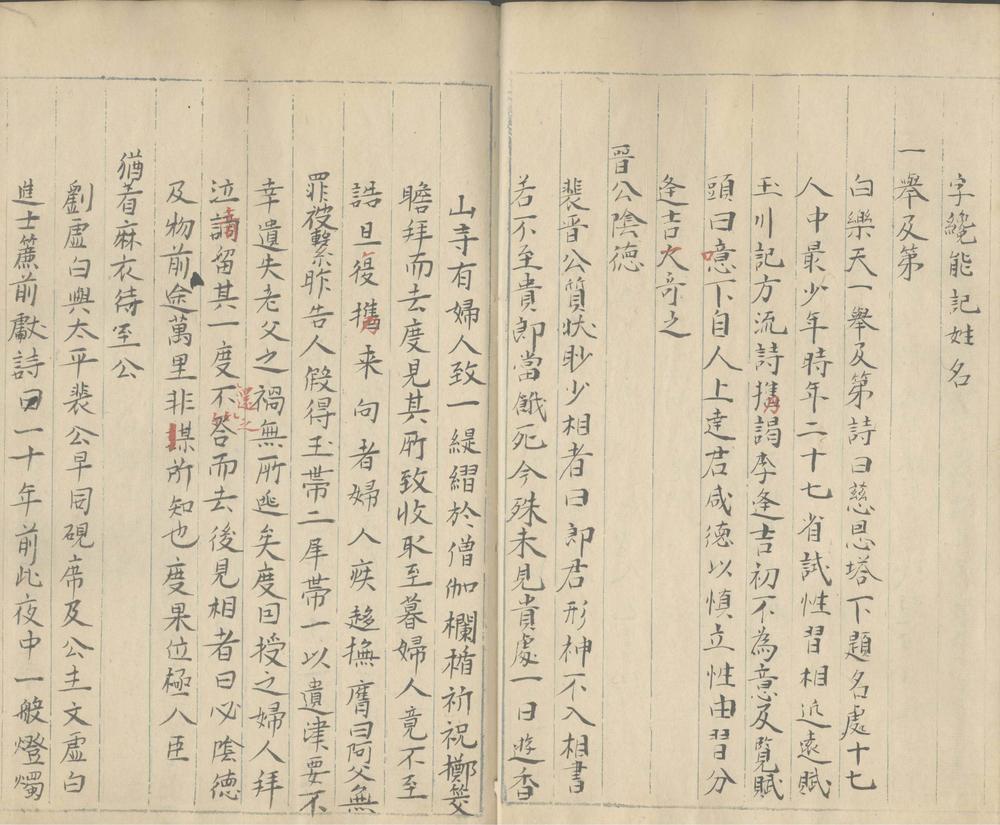 字纔能記姓名
一舉及第
白樂天一舉及第詩曰慈恩塔下題名處十七
人中最少年時年二十七省試性習相近遠賦
玉川記方流詩攜謁李逢吉初不為意及覽賦
頭曰噫下自人上達君咸德以慎立性由習分
逢吉大奇之
晉公陰德
裴晉公質狀眇少相者曰郎君形神不入相書
若不至貴即當餓死今殊未見貴處一日遊香
山寺有婦人致一緹縚於僧伽欄楯祈祝擲筊
瞻拜而去度見其所致收取至暮婦人竟不至
詰旦復攜来向者婦人疾趍撫膺曰阿父無
罪被繫昨告人假得玉帶二犀帶一以遺津要不
幸遺失老父之禍無所逃矣度曰授之婦人拜
泣請留其一度不答還之而去後見相者曰必陰德
及物前途萬里非某所知也度果位極人臣
猶着麻衣待至公
劉虛白與太平裴公早同硯席及公主文虛白
進士簾前獻詩曰二十年前此夜中一般燈燭